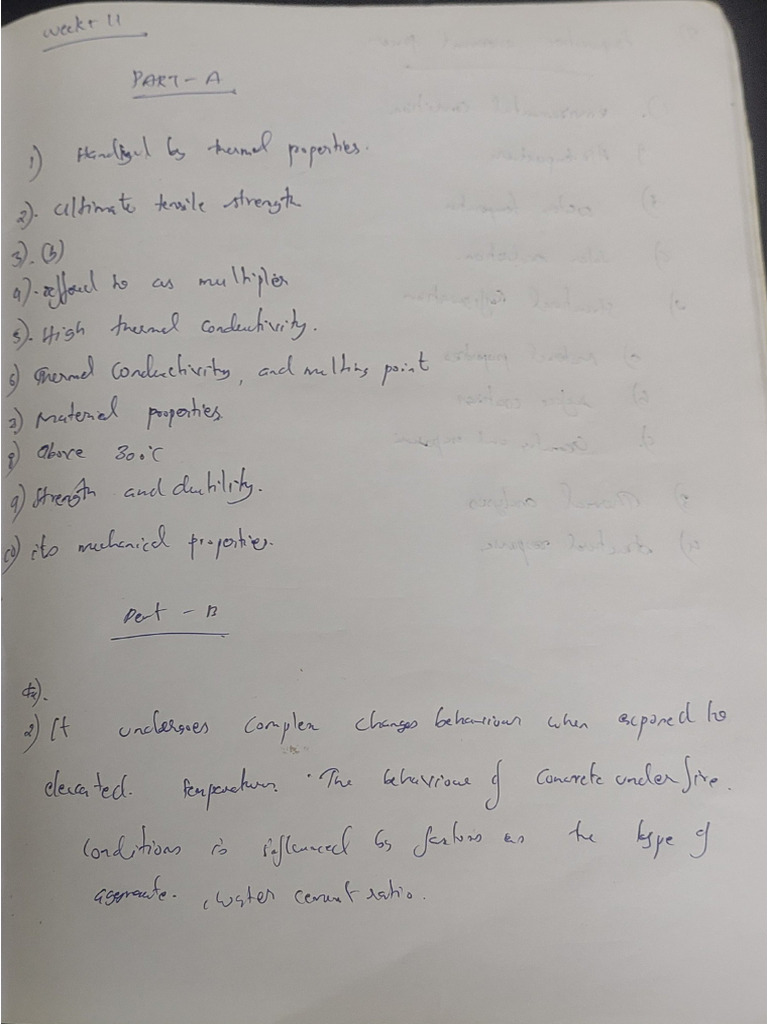 Week 11
PART - A
1) by thermal properties.
2). Ultimate tensile strength
3). (b)
4). reffered to as multiplier
5). High thermal conductivity.
6) Thermal Conductivity, and melting point
7) Material properties
8) Above 300°C
9) Strength and ductility.
10) its mechanical properties.
Part - B
2) It undergoes complex changes behaviour when exposed to
elevated. temperature. The behaviour of Concrete under fire.
Conditions is influenced by factors as the type of
aggregate. , water cement ratio.